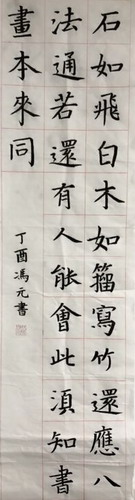 石如飛白木如籀寫竹還應八
法通若還有人能會此須知書
畫本來同
丁酉馮元書